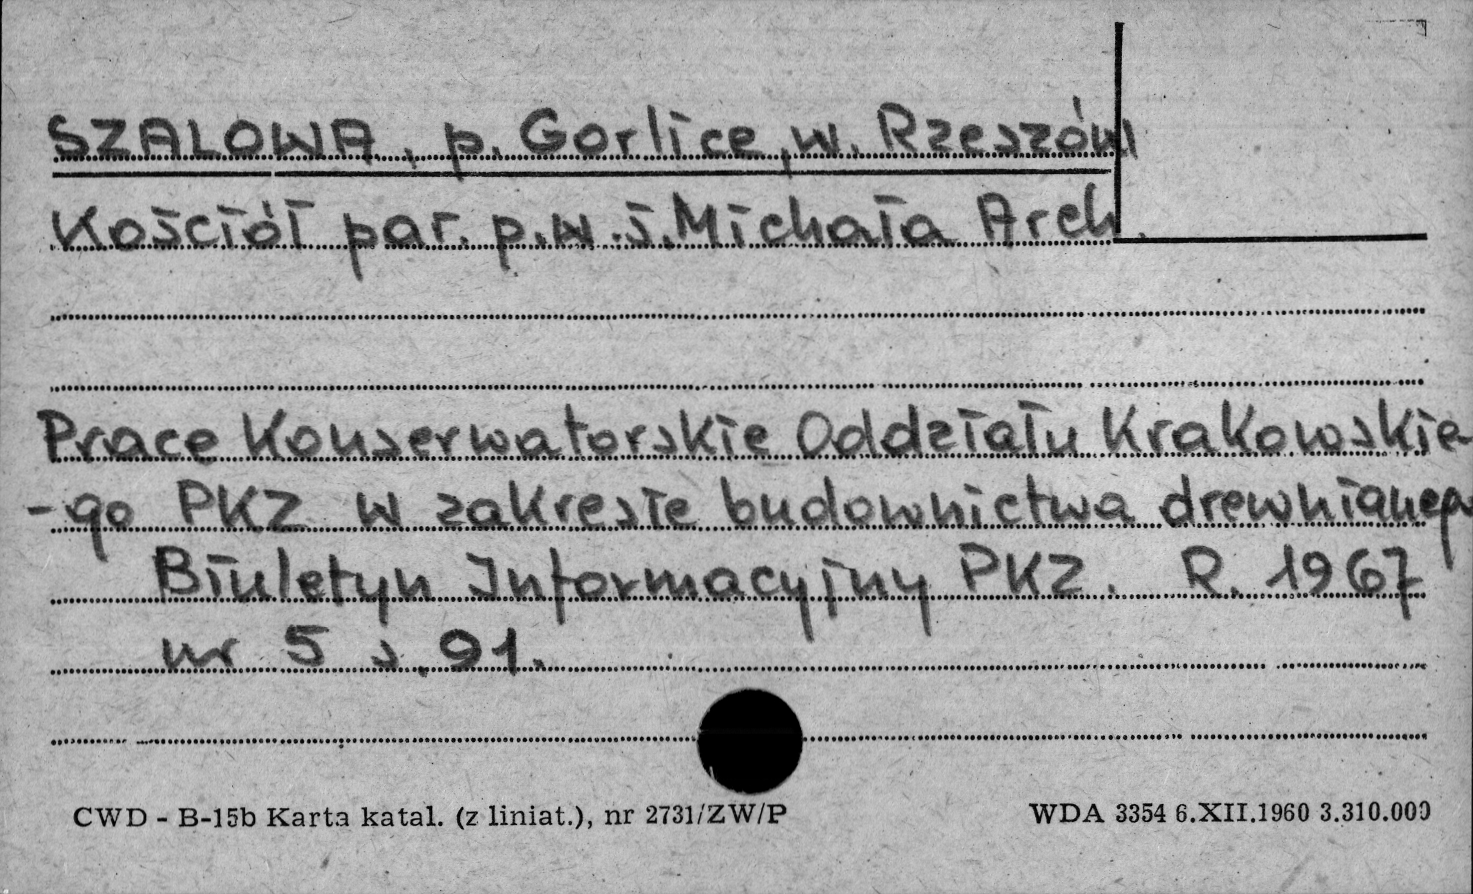 SZALOWA, p. Gorlice, w. Rzeszów
Kościół par. p.w. ś. Michała Arch.
Prace Konserwatorskie Oddziału Krakowskie
-go PKZ w zakresie budownictwa drewnianego
Biuletyn Informacyjny PKZ. R. 1967
nr 5 s. 91.
CWD - B-15b Karta katal. (z liniat.), nr 2731/ZW/P WDA 3354 6.XII.1960 3.310.000